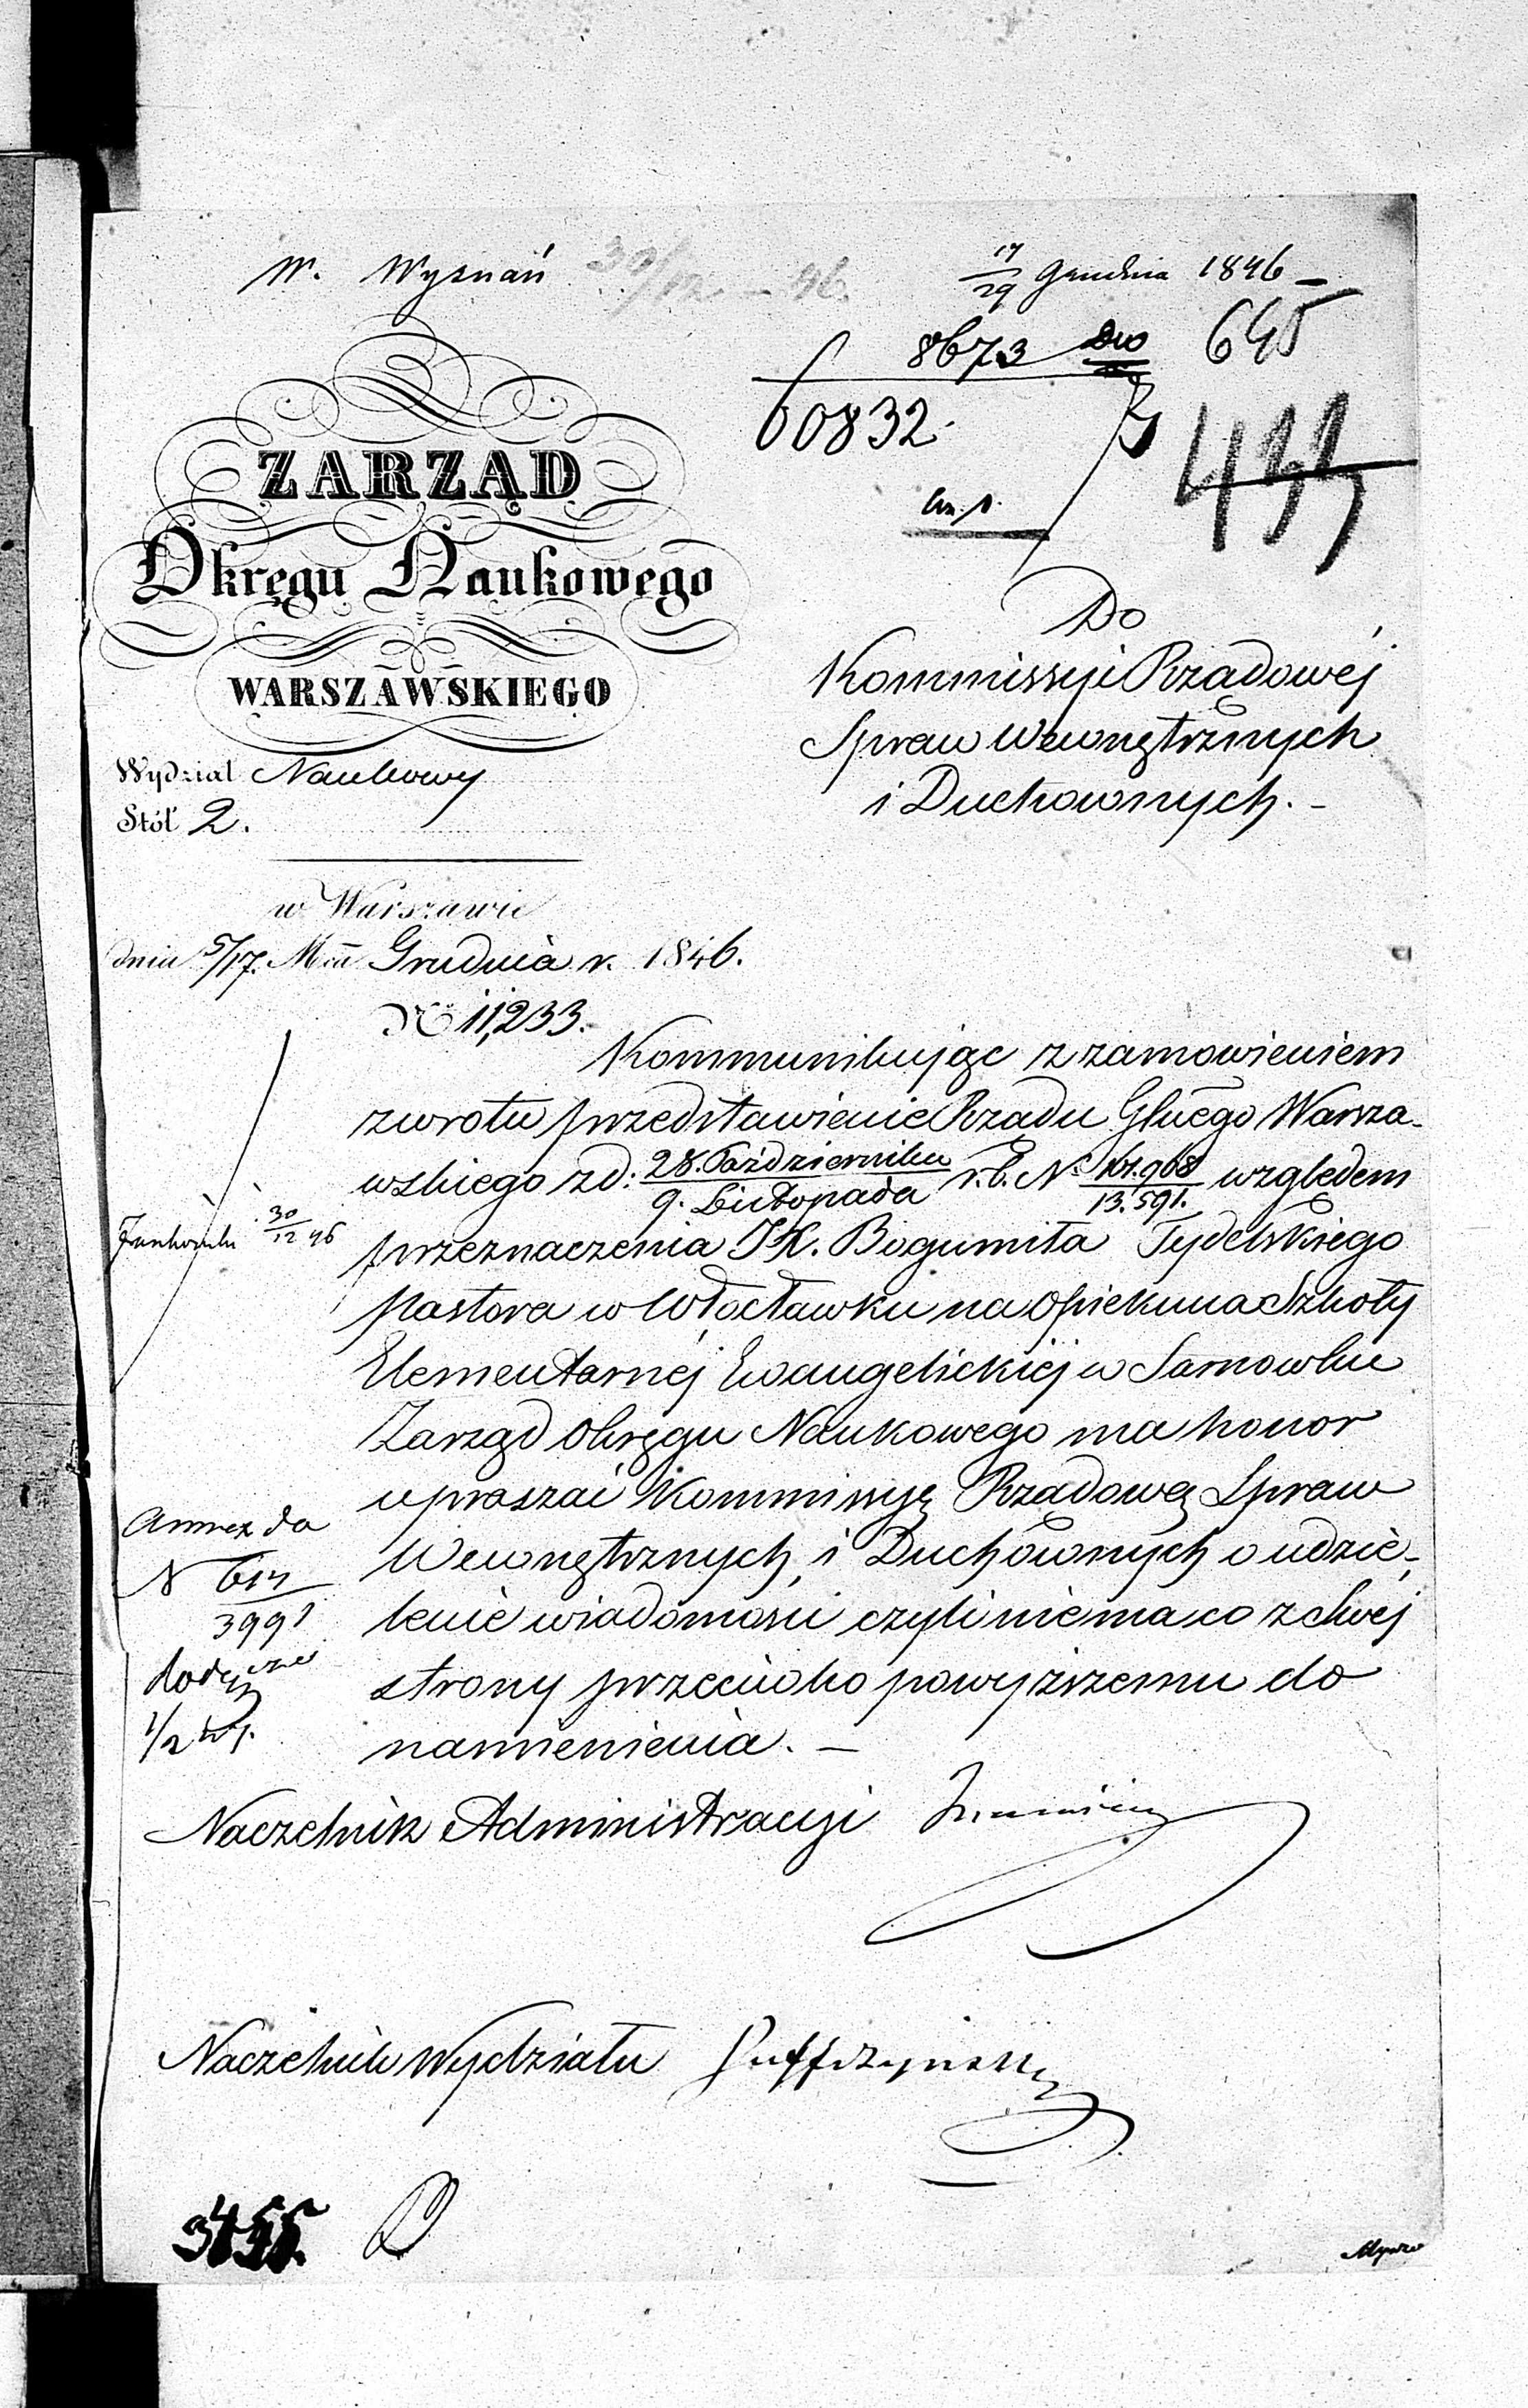 W. Wyznań 30/12 - 46.
17/29 Grudnia 1846 -
8673
645
60832.
ZARZĄD
Okręgu Naukowego
WARSZAWSKIEGO
Wydział Naukowy
Stół 2.
Do
Kommissyi Rządowéj
Spraw Wewnętrznych
i Duchownych. -
w Warszawie
dnia 5/17. Mca Grudnia r. 1846.
No 11,233.
Kommunikując z zamowieniem
zwrotu przedstawienie Rządu Głnego Warsza-
wskiego z d: 28. Października / 9. Listopada r. b. No 101.968 / 13.591. względem
30/12 46
przeznaczenia JX. Bogumiła Tydelskiego
Pastora w Włocławku na Opiekuna Szkoły
Elementarnéj Ewangelickiéj w Sarnowku
Zarząd Okręgu Naukowego ma honor
upraszać Kommissyę Rządową Spraw
Wewnętrznych, i Duchownych o udzie-
lenie wiadomości czyli niema co z swéj
strony przeciwko powyższemu do
namienienia. -
Annex do
N
3991
1/2
Naczelnik Administracyi
Naczelnik Wydziału